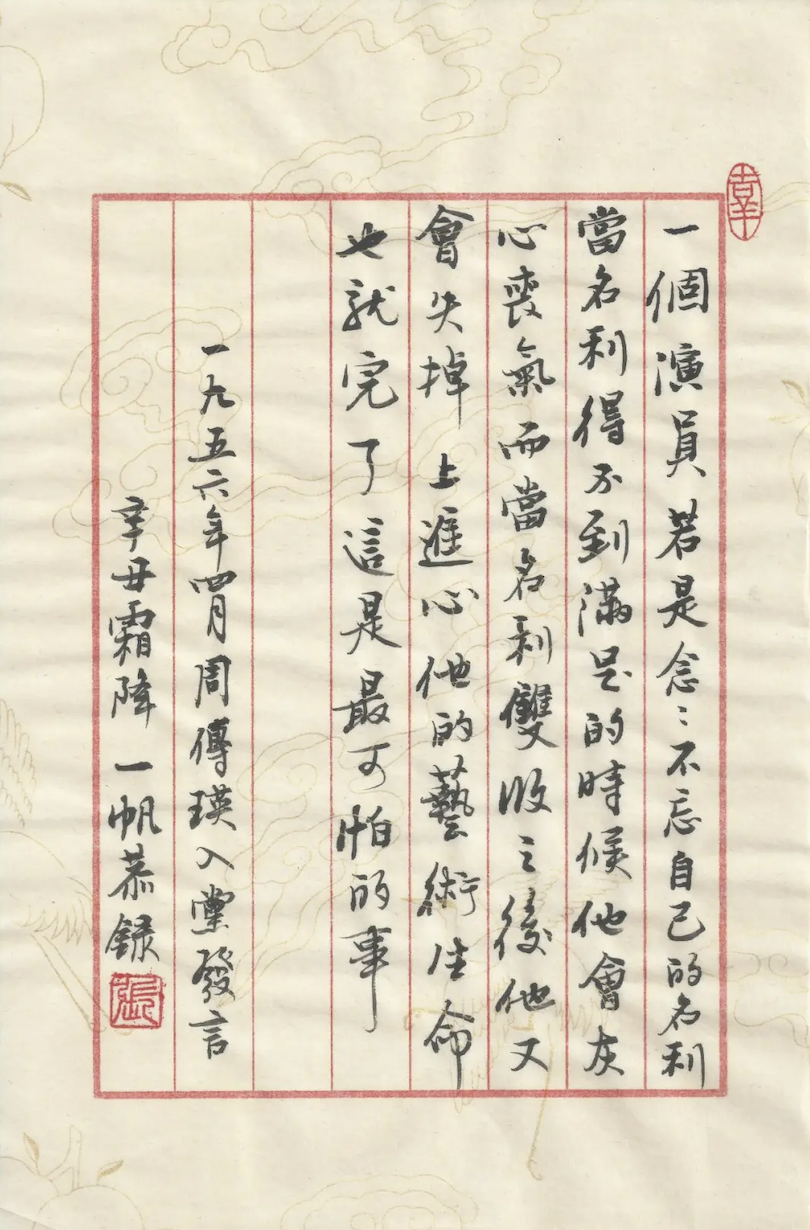 一個演員若是念〻不忘自己的名利
當名利得不到滿足的時候他會灰
心喪氣而當名利雙收之後他又
會失掉上進心他的藝術生命
也就完了這是最可怕的事
一九五六年四月周傳瑛入黨發言
辛丑霜降一帆恭録
張